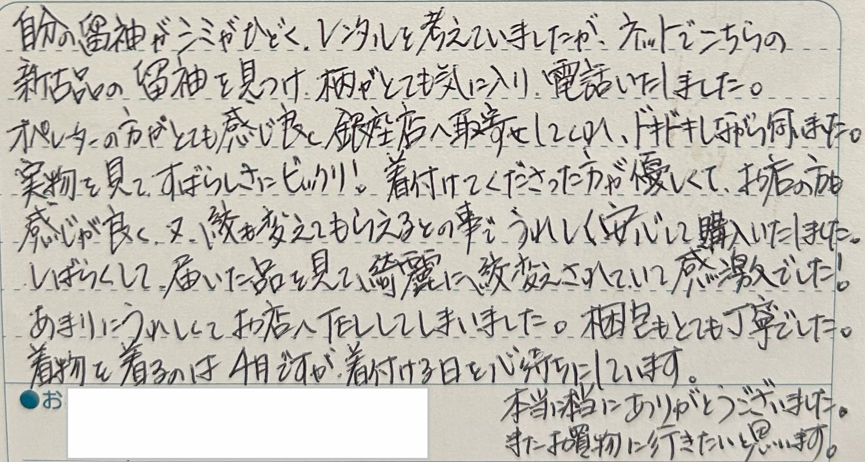 自分の留袖がシミがひどく、レンタルを考えていましたが、ネットでこちらの
新古品の留袖を見つけ、柄がとても気に入り、電話いたしました。
オペレーターの方がとても感じ良く銀座店へ取寄せしてくれ、ドキドキしながら伺いました。
実物を見て、すばらしさにビックリ!、着付けてくださった方が優しくて、お店の方も
感じが良く、又、紋も変えてもらえるとの事で、うれしく安心して購入いたしました。
しばらくして、届いた品を見て、綺麗に紋変えされていて感激でした!
あまりにうれしくてお店へTELしてしまいました。梱包もとても丁寧でした。
着物を着るのは4月ですが、着付ける日を心待ちにしています。
●お
本当に本当にありがとうございました。
またお買物に行きたいと思います。